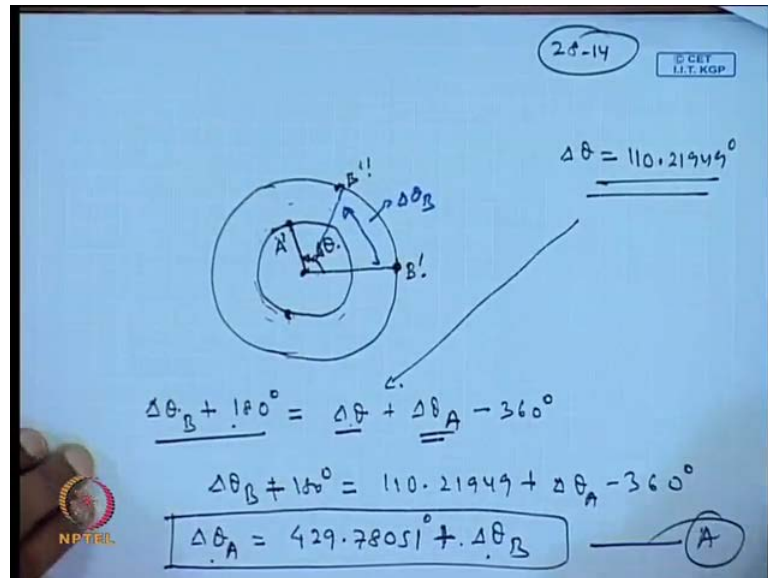 28-14
© CET
I.I.T. KGP
Δθ = 110.21949°
B''
ΔθB
A'
Δθ.
B'
ΔθB + 180° = Δθ + ΔθA - 360°
ΔθB + 180° = 110.21949 + ΔθA - 360°
ΔθA = 429.78051° + ΔθB
A
NPTEL